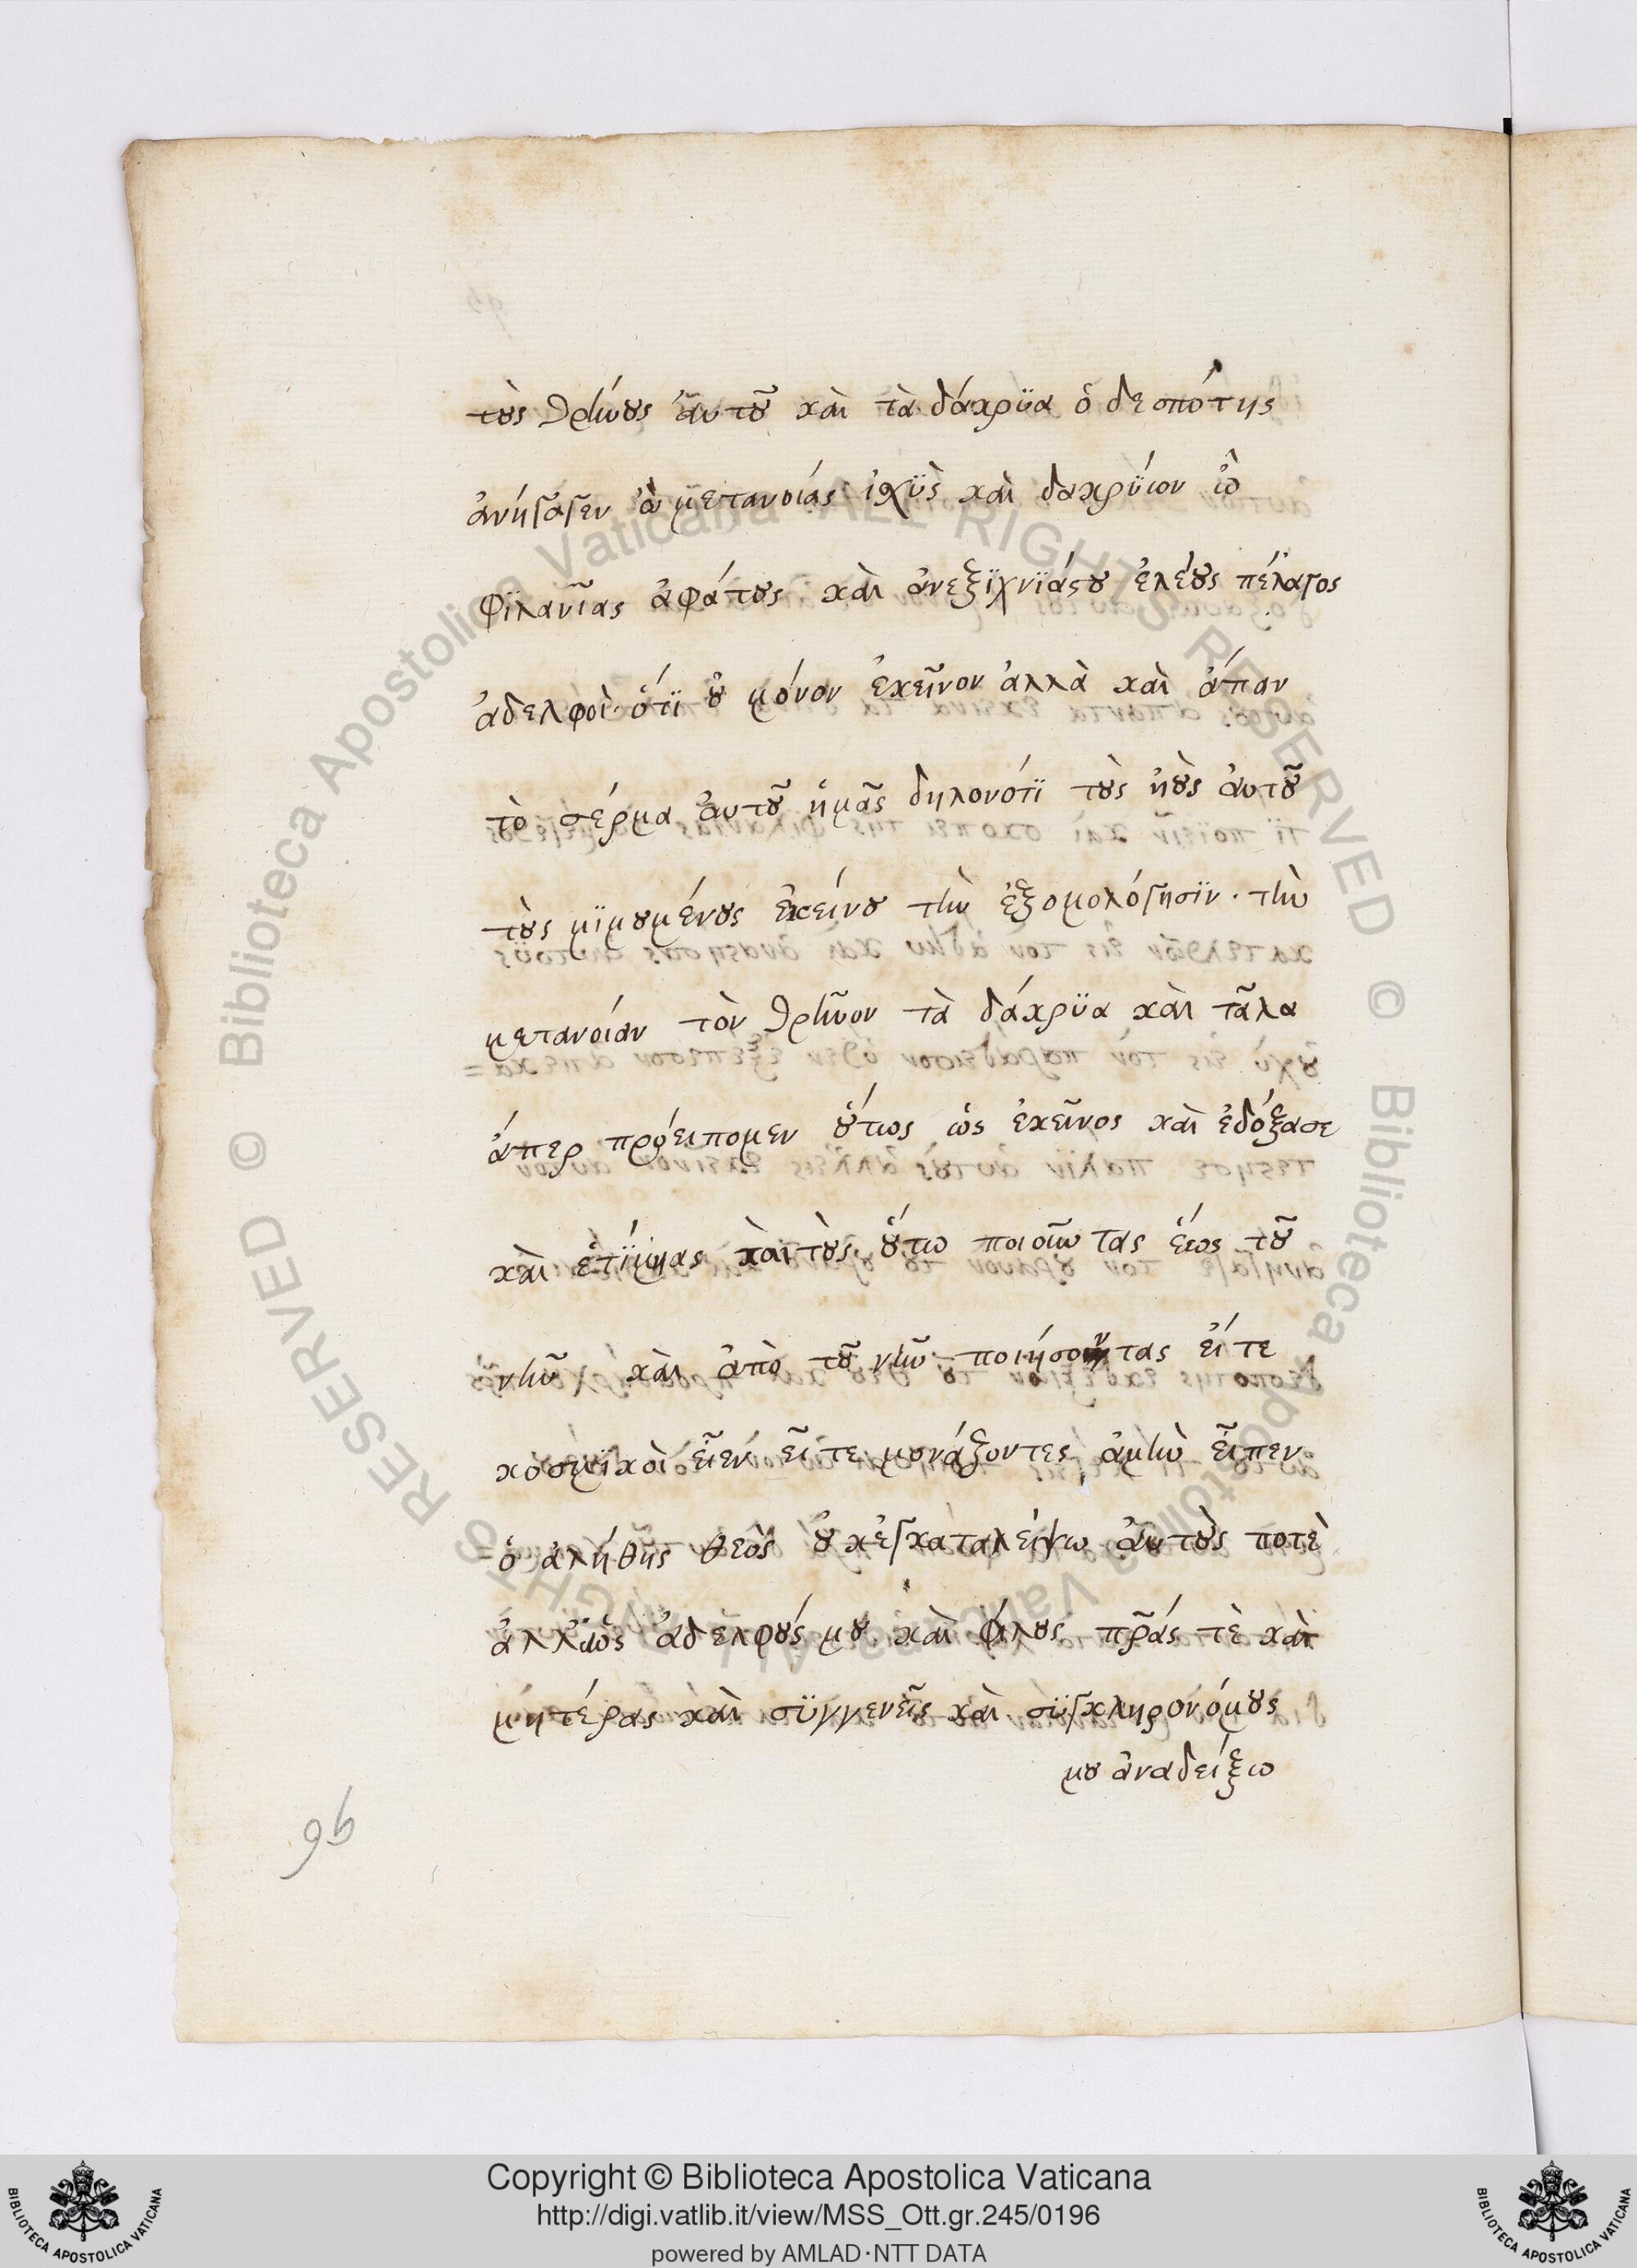 τοὺς θρήνους ἀυτοῦ καὶ τὰ δάκρϋα ὁ δεσπότης
ἀνήγαγεν ὢ μετανοίας ἰχϋς καὶ δακρϋίων ὢ
φϊλανῖας ἀφάτους καὶ ἀνεξϊχνϊάστου ἐλέους πέλαγος
ἀδελφοὶ· ὁτϊ οὐ μόνον ἐκεῖνον ἀλλὰ καὶ ἁπαν
τὸ σπέρμα ἀυτοῦ ἡμᾶς δηλονότϊ τοὺς ἡοὺς ἀυτοῦ
τοὺς μϊμουμένους ἐκείνου τὴν ἐξομολόγησϊν· τὴν
μετανοίαν τὸν θρῆνον τὰ δάκρϋα καὶ τἆλα
ἅπερ πρόειπομεν οὕτως ὡς ἐκεῖνος καὶ ἐδόξασε
καὶ ἐτϊμησας καὶ τοὺς οὕτω ποιοῦντας ἕως τοῦ
νῦν καὶ ἀπὸ τοῦ νῦν ποιήσοντας εἴτε
κοσμϊκοὶ εἶεν εἶτε μονάζοντες ἀμὴν εἶπεν
ὁ ἀληθὴς θεὸς οὐκ ἐγκαταλείψω ἀυτοὺς ποτὲ
ἀλλ' ὡς ἀδελφούς μου καὶ φίλους πρ̃άς τὲ καὶ
μητέρας καὶ σϋγγενεῖς καὶ σϋγκληρονόμους
μου ἀναδείξω
96
© Biblioteca Apostolica Vaticana ALL RIGHTS RESERVED © Biblioteca Apostolica Vaticana ALL RIGHTS RESERVED
Copyright © Biblioteca Apostolica Vaticana
http://digi.vatlib.it/view/MSS_Ott.gr.245/0196
powered by AMLAD·NTT DATA
BIBLIOTECA APOSTOLICA VATICANA
BIBLIOTECA APOSTOLICA VATICANA